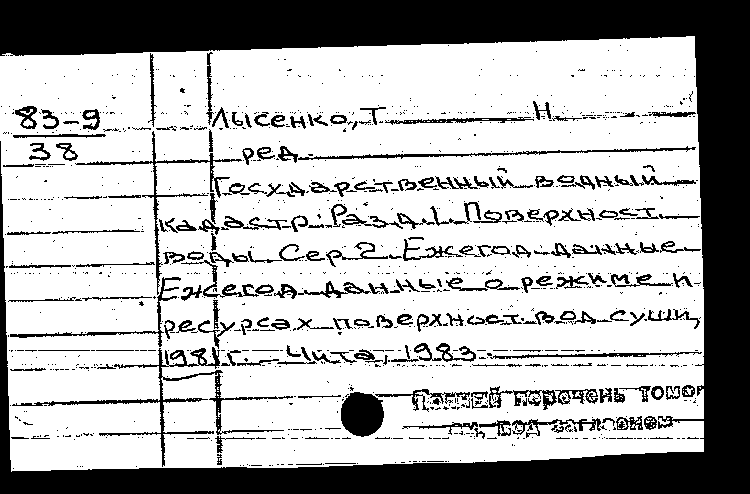 83-9
38
Лысенко, Т Н.
ред.
Государственный водный
кадастр. Разд. 1. Поверхност.
воды. Сер. 2. Ежегод. данные
Ежегод. данные о режиме и
ресурсах поверхност. вод суши,
1981 г. – Чита, 1983.
Полный перечень томов
см. под заглавием